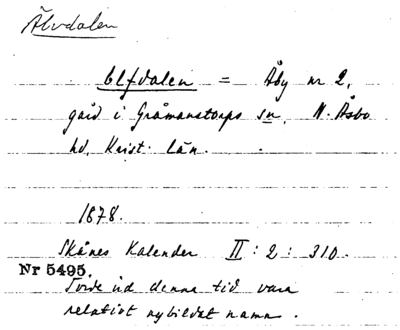 Älvdalen
Elfdalen = Åby nr 2,
gård i Gråmanstorps sn, N. Åsbo
hd, Krist. län.
1878.
Skånes Kalender II : 2 : 310.
Nr 5495.
Torde vid denna tid vara
relativt nybildat namn.